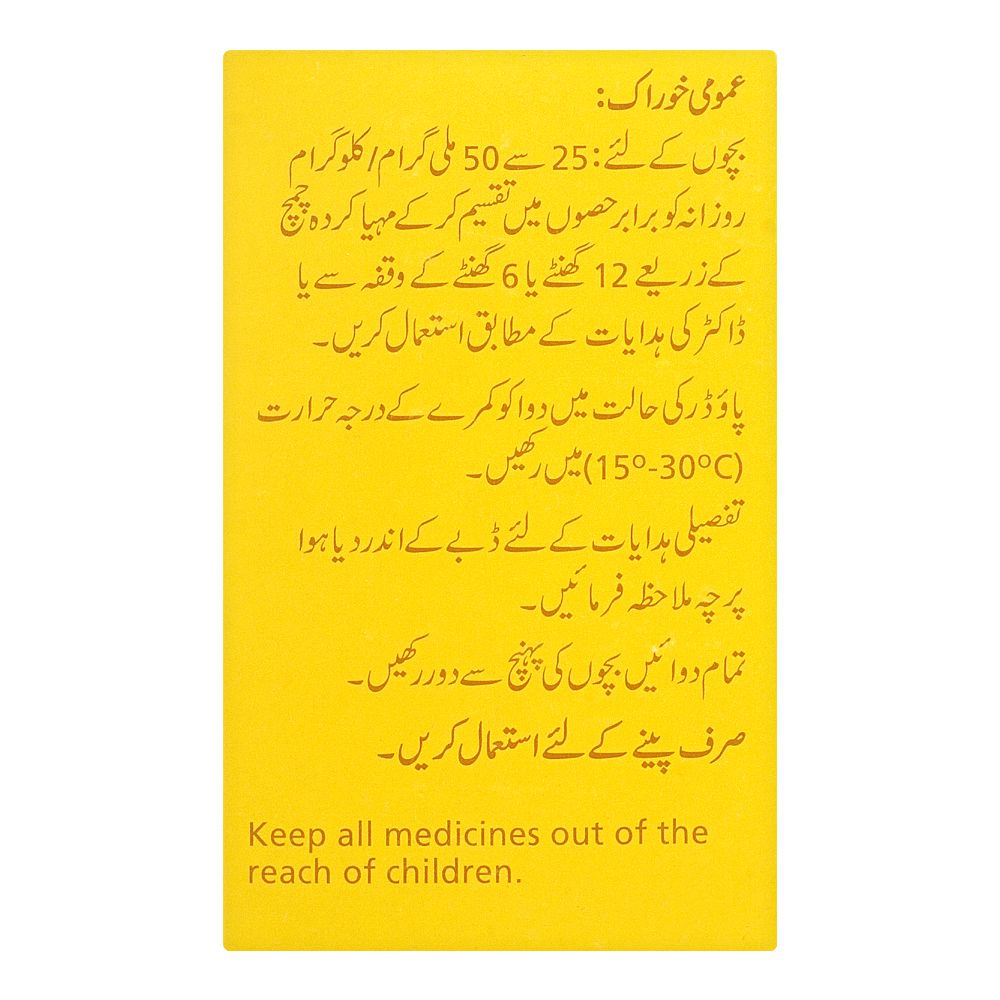 عمومی خوراک:
بچوں کے لئے: 25 سے 50 ملی گرام/کلوگرام
روزانہ کو برابر حصوں میں تقسیم کر کے مہیا کردہ چمچ
کے زریعے 12 گھنٹے یا 6 گھنٹے کے وقفہ سے یا
ڈاکٹر کی ہدایات کے مطابق استعمال کریں۔
پاؤڈر کی حالت میں دوا کو کمرے کے درجہ حرارت
(15º-30ºC) میں رکھیں۔
تفصیلی ہدایات کے لئے ڈبے کے اندر دیا ہوا
پرچہ ملاحظہ فرمائیں۔
تمام دوائیں بچوں کی پہنچ سے دور رکھیں۔
صرف پینے کے لئے استعمال کریں۔
Keep all medicines out of the
reach of children.